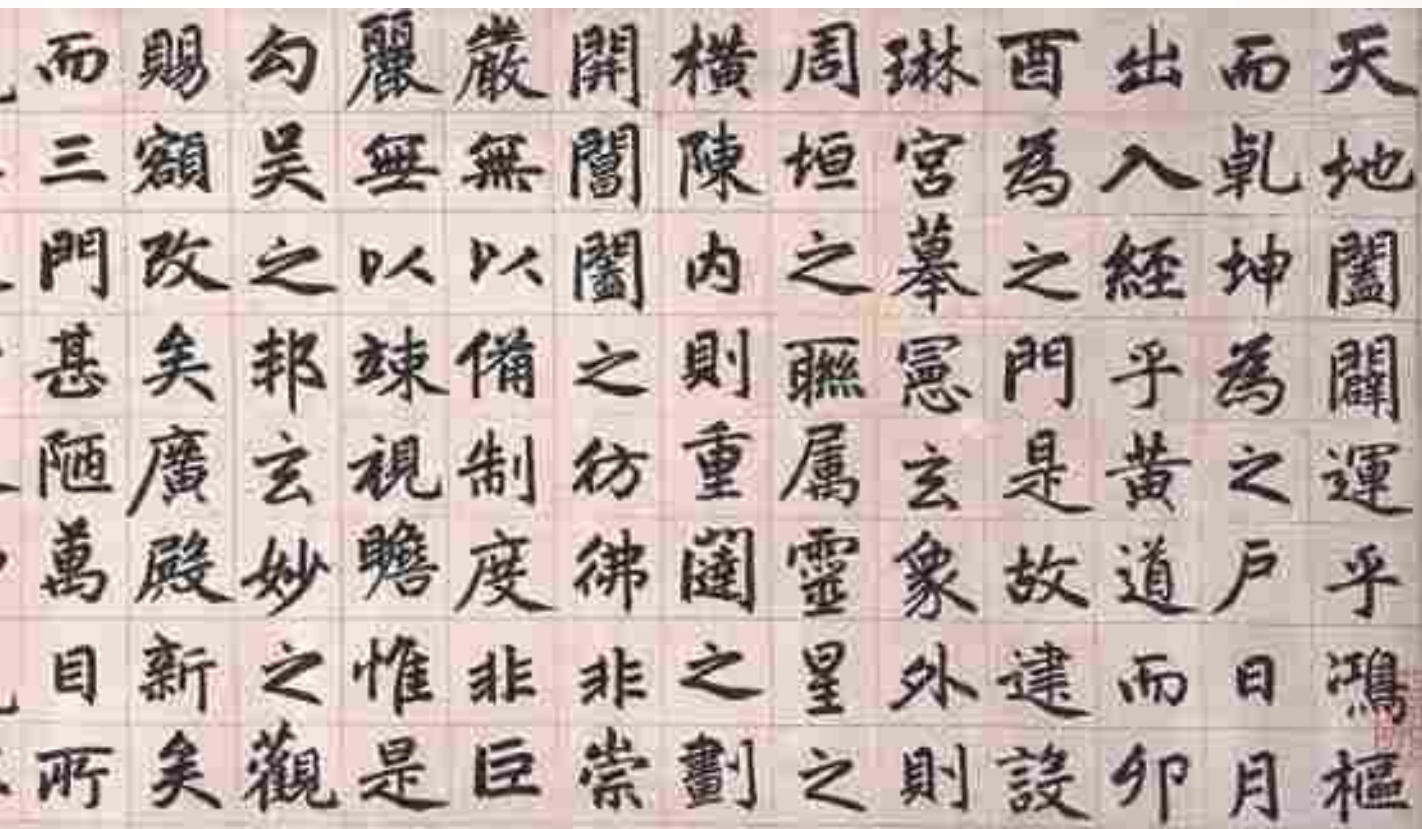 天地闔闢運乎鴻樞
而乹坤為之户日月
出入經乎黃道而卯
酉為之門是故建設
琳宮摹憲玄象外則
周垣之聯属靈星之
横陳内則重闥之劃
開閶闔之彷彿非崇
嚴無以備制度非巨
麗無以竦視瞻惟是
勾吴之邦玄妙之觀
賜額改矣廣殿新矣
而三門甚陋萬目所